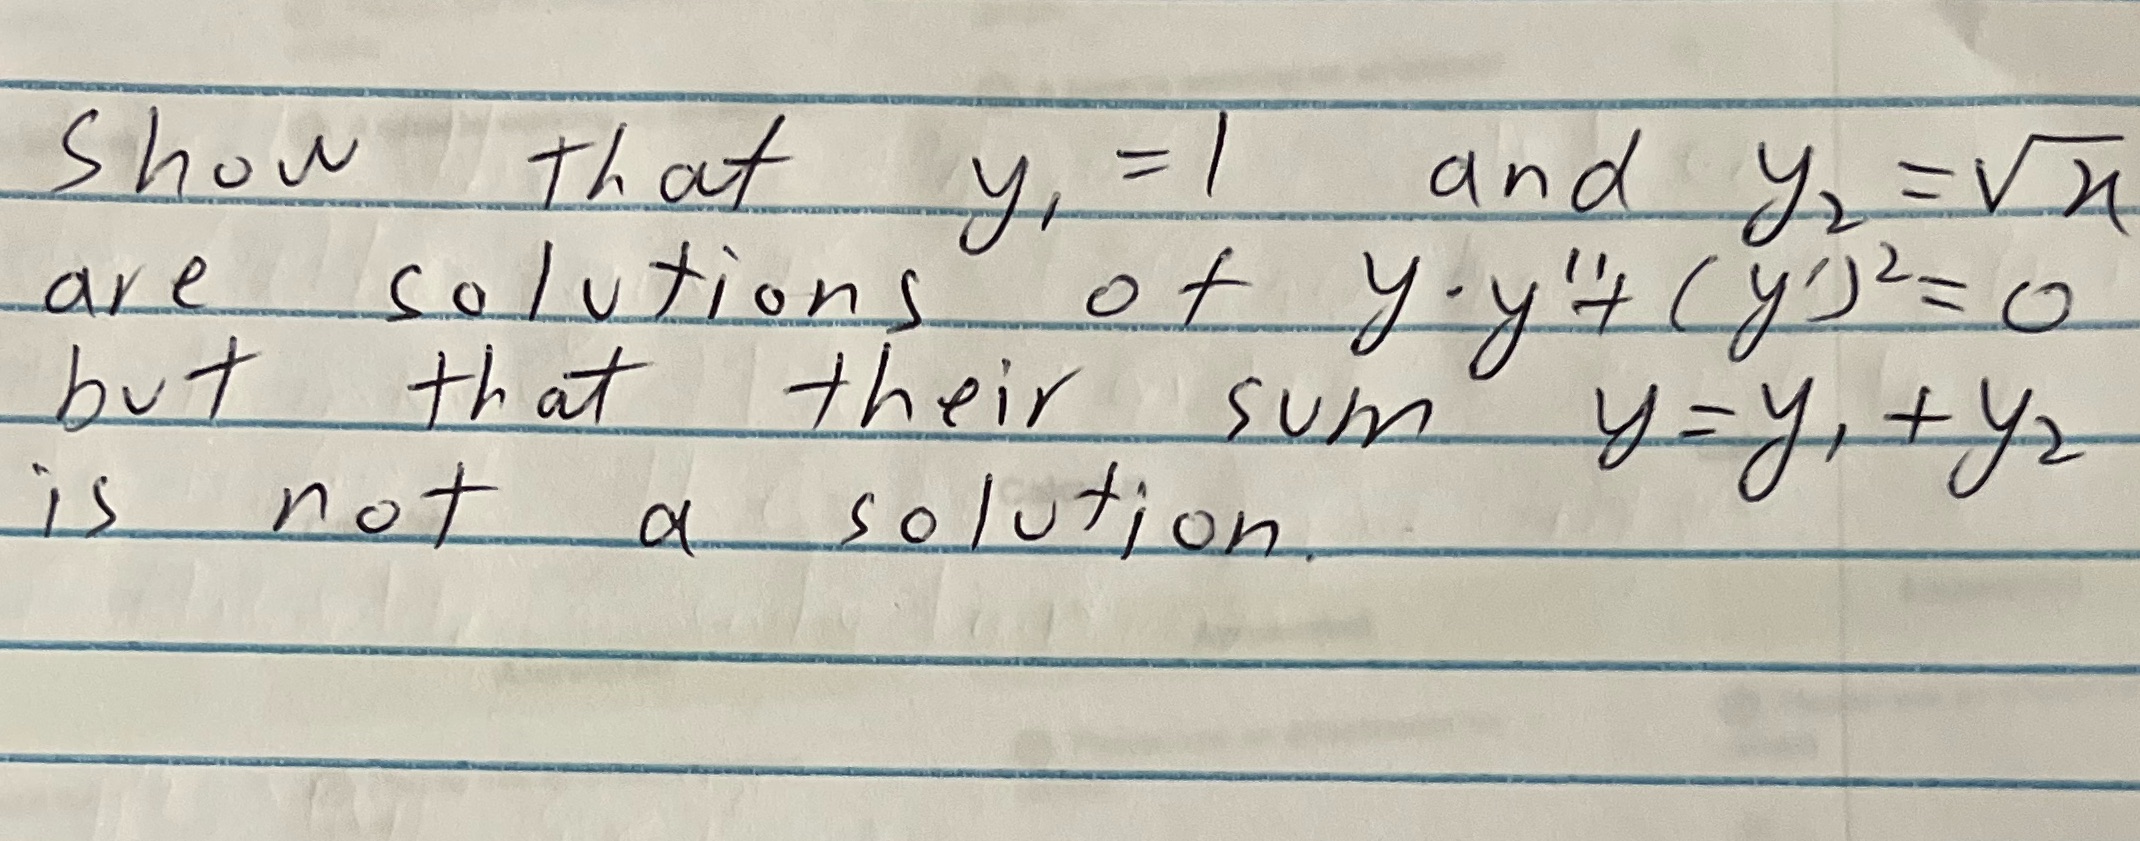 Show that y₁ = 1 and y₂ = √x
are solutions of y·y'' + (y')² = 0
but that their sum y = y₁ + y₂
is not a solution.